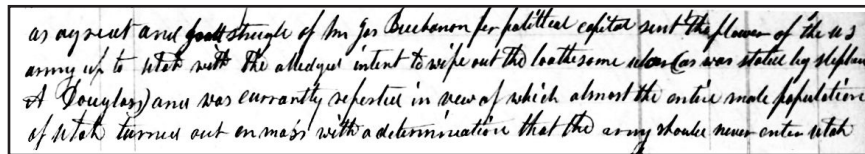 as a great and struggle of Mr Jas Buchanon for political capital sent the flower of the US
army up to Utah with the alledged intent to wipe out the loathesome ulcer (as was stated by Stephen
A Douglass) and was currantly reported in view of which almost the entire male population
of Utah turned out en mass with a determination that the army should never enter Utah